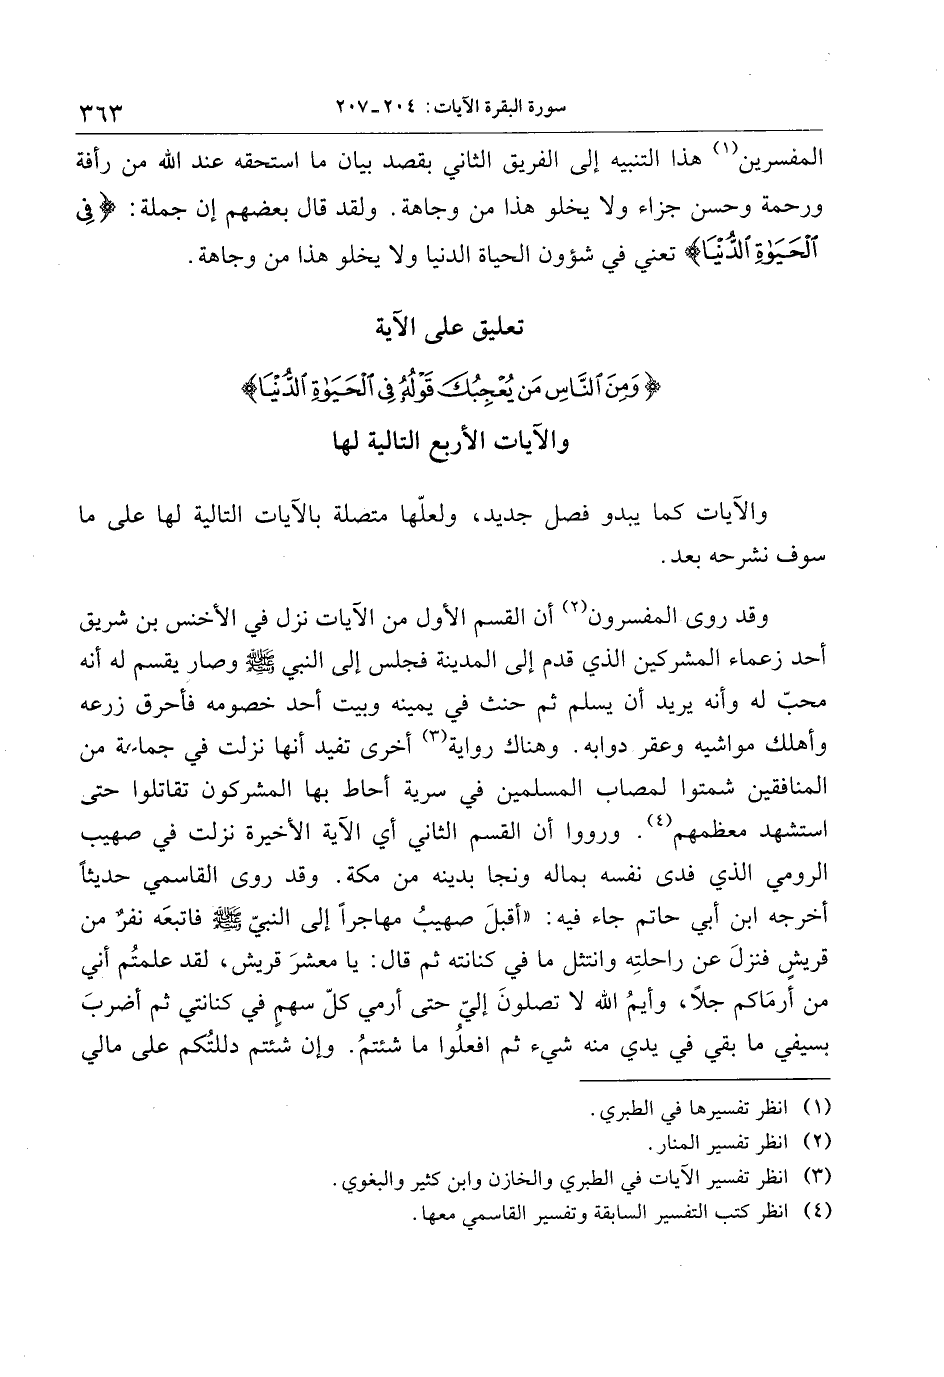 سورة البقرة الآيات: ٢٠٤ـ٢٠٧ ٣٦٣
المفسرين(١) هذا التنبيه إلى الفريق الثاني بقصد بيان ما استحقه عند الله من رأفة
ورحمة وحسن جزاء ولا يخلو هذا من وجاهة. ولقد قال بعضهم إن جملة: ﴿فِى
ٱلْحَيَوٰةِ ٱلدُّنْيَا﴾ تعني في شؤون الحياة الدنيا ولا يخلو هذا من وجاهة.
تعليق على الآية
﴿وَمِنَ ٱلنَّاسِ مَن يُعْجِبُكَ قَوْلُهُۥ فِى ٱلْحَيَوٰةِ ٱلدُّنْيَا﴾
والآيات الأربع التالية لها
والآيات كما يبدو فصل جديد، ولعلّها متصلة بالآيات التالية لها على ما
سوف نشرحه بعد.
وقد روى المفسرون(٢) أن القسم الأول من الآيات نزل في الأخنس بن شريق
أحد زعماء المشركين الذي قدم إلى المدينة فجلس إلى النبي ﷺ وصار يقسم له أنه
محبّ له وأنه يريد أن يسلم ثم حنث في يمينه وبيت أحد خصومه فأحرق زرعه
وأهلك مواشيه وعقر دوابه. وهناك رواية(٣) أخرى تفيد أنها نزلت في جماعة من
المنافقين شمتوا لمصاب المسلمين في سرية أحاط بها المشركون تقاتلوا حتى
استشهد معظمهم(٤). ورووا أن القسم الثاني أي الآية الأخيرة نزلت في صهيب
الرومي الذي فدى نفسه بماله ونجا بدينه من مكة. وقد روى القاسمي حديثاً
أخرجه ابن أبي حاتم جاء فيه: «أقبلَ صهيبُ مهاجراً إلى النبيّ ﷺ فاتبعَه نفرٌ من
قريشٍ فنزلَ عن راحلتِه وانتثل ما في كنانته ثم قال: يا معشرَ قريش، لقد علمتُم أني
من أرمَاكم جلًا، وأيمُ الله لا تصلونَ إليّ حتى أرمي كلّ سهمٍ في كنانتي ثم أضربَ
بسيفي ما بقي في يدي منه شيء ثم افعلُوا ما شئتمُ. وإن شئتم دللتُكم على مالي
(١) انظر تفسيرها في الطبري.
(٢) انظر تفسير المنار.
(٣) انظر تفسير الآيات في الطبري والخازن وابن كثير والبغوي.
(٤) انظر كتب التفسير السابقة وتفسير القاسمي معها.